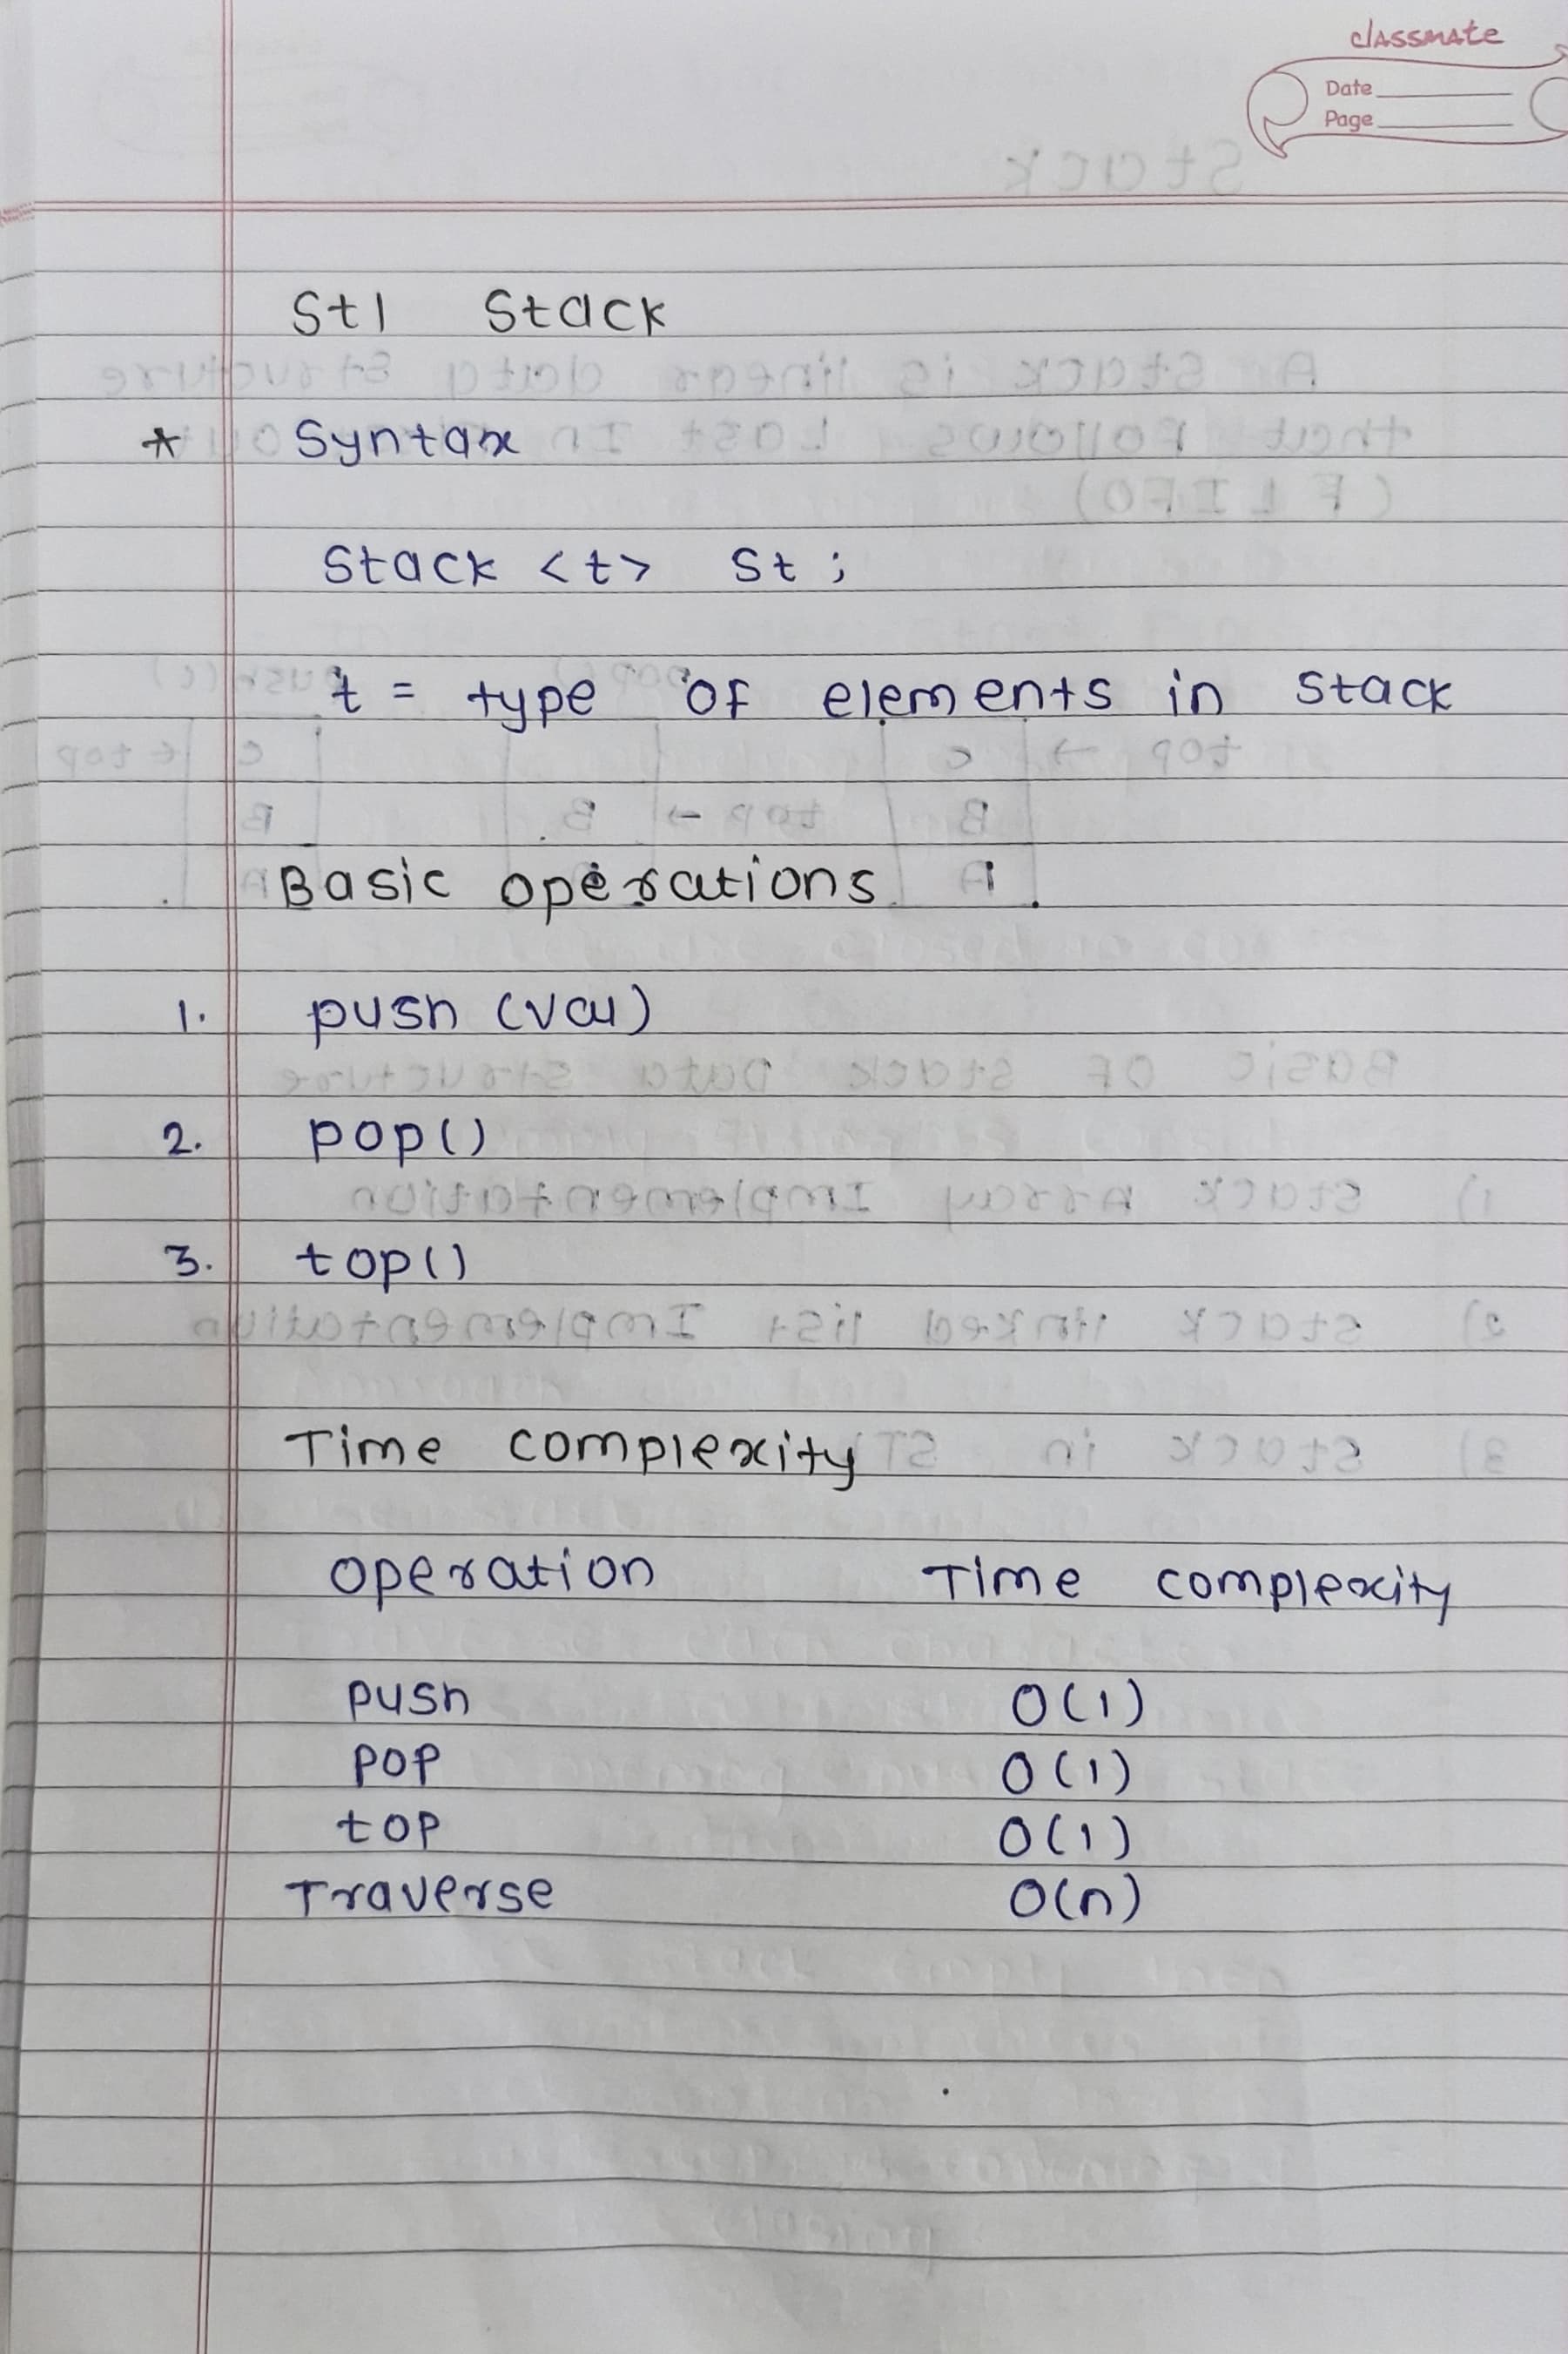 classmate
Date
Page
Stl Stack
* Syntax
Stack <t> St ;
t = type of elements in stack
Basic operations
1. push (val)
2. pop()
3. top()
Time complexity
operation Time complexity
push O(1)
pop O(1)
top O(1)
Traverse O(n)